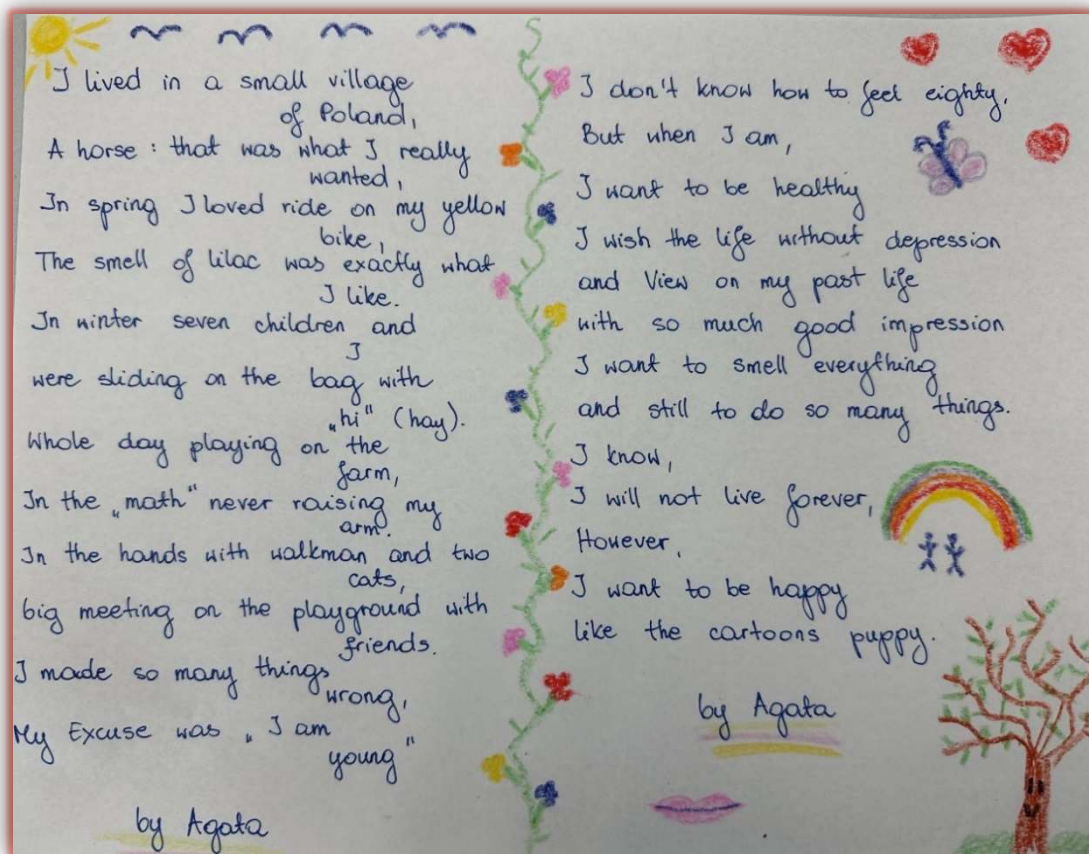 I lived in a small village
of Poland,
A horse : that was what I really
wanted,
In spring I loved ride on my yellow
bike,
The smell of lilac was exactly what
I like.
In winter seven children and
I
were sliding on the bag with
„hi" (hay).
Whole day playing on the
farm,
In the „math" never raising my
arm.
In the hands with walkman and two
cats,
big meeting on the playground with
friends.
I made so many things
wrong,
My Excuse was „I am
young"
by Agata
I don't know how to feel eighty,
But when I am,
I want to be healthy
I wish the life without depression
and View on my past life
with so much good impression
I want to smell everything
and still to do so many things.
I know,
I will not live forever,
However,
I want to be happy
like the cartoons puppy.
by Agata